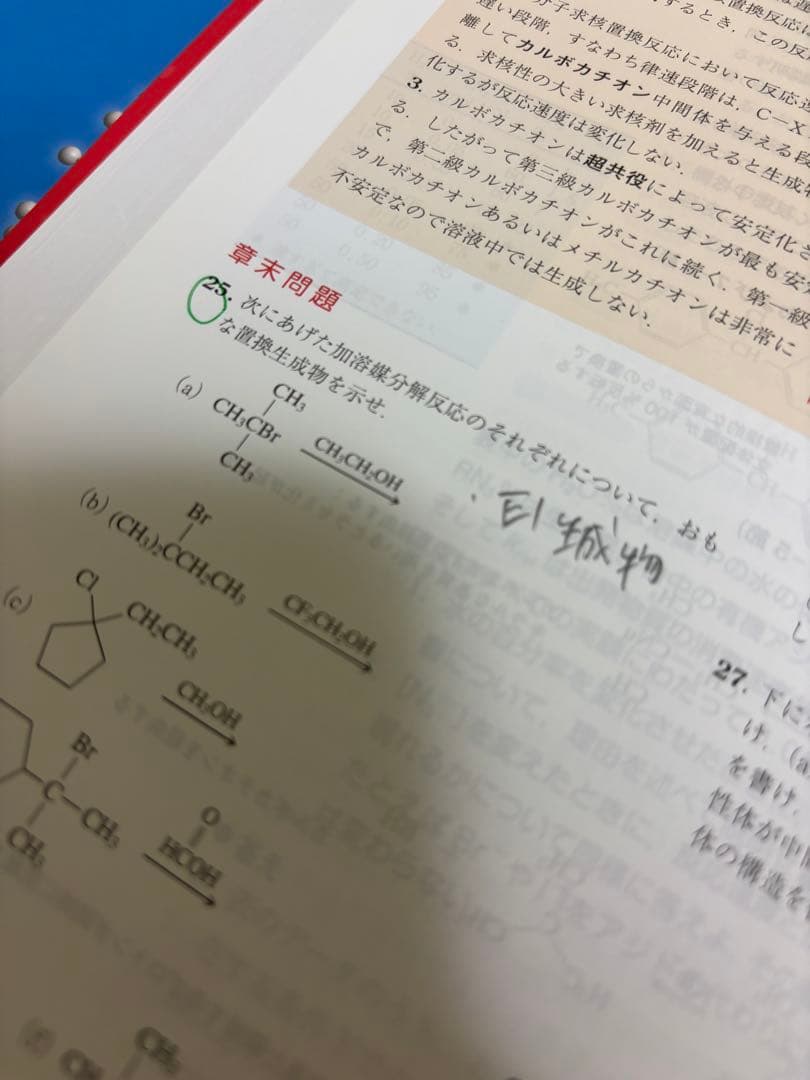 分子求核置換反応において反応
遅い段階，すなわち律速段階は，C—X
離してカルボカチオン中間体を与える段
る．求核性の大きい求核剤を加えると生成
化するが反応速度は変化しない．
3. カルボカチオンは超共役によって安定化さ
る．したがって第三級カルボカチオンが最も安
で，第二級カルボカチオンがこれに続く．第一級
カルボカチオンあるいはメチルカチオンは非常に
不安定なので溶液中では生成しない．
章末問題
25. 次にあげた加溶媒分解反応のそれぞれについて，おも
な置換生成物を示せ．
(a)
CH₃
CH₃CBr
CH₃
CH₃CH₂OH
(b)
Br
(CH₃)₂CCH₂CH₃
CF₃CH₂OH
(c)
Cl
CH₂CH₃
CH₃OH
Br
C—CH₃
CH₃
O
HCOH
CH₃
27. 下に
け．(a
を書け．
性体が中
体の構造を